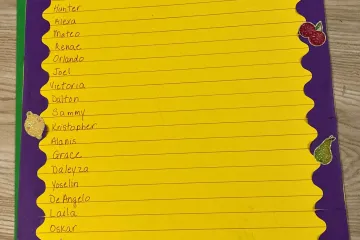 Hunter
Alexa
Mateo
Renae
Orlando
Joel
Victoria
Dalton
Sammy
Kristopher
Alanis
Grace
Daleyza
Yoselin
DeAngelo
Laila
Oskar